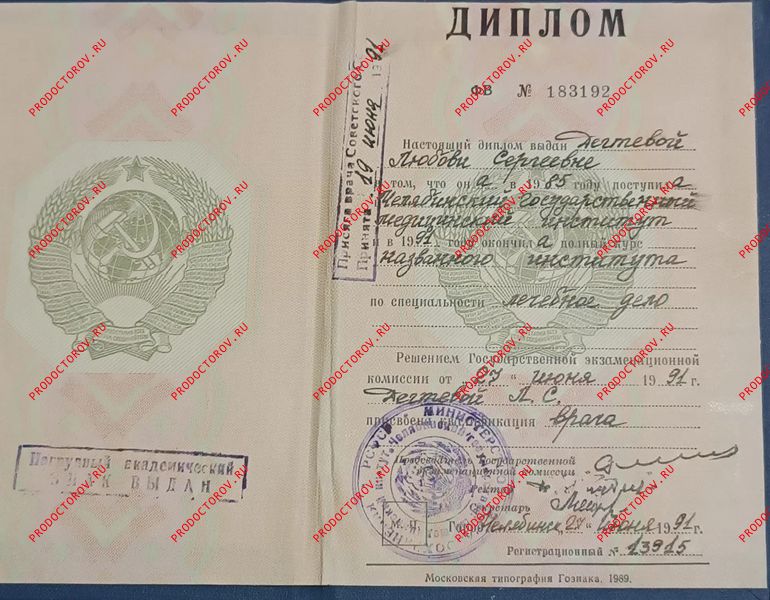 ДИПЛОМ
ФВ № 183192
Настоящий диплом выдан Дегтевой
Любови Сергеевне
в том, что он а в 1985 году поступил а
Челябинский государственный
медицинский институт
и в 1991 году окончил а полный курс
названного института
по специальности лечебное дело
Решением Государственной экзаменационной
комиссии от „27 “ июня 1991 г.
Дегтевой Л. С.
присвоена квалификация врача
Председатель Государственной
экзаменационной комиссии
Ректор
Секретарь
М. П.
Город Челябинск „27 “ июня 1991 г.
Регистрационный № 13915
Московская типография Гознака, 1989.
Присяга врача Советского С
Принята 19 июня 1991
Нагрудный академический
ЗНАК ВЫДАН
РСФСР МИНИСТЕР
PRODOCTOROV.RU